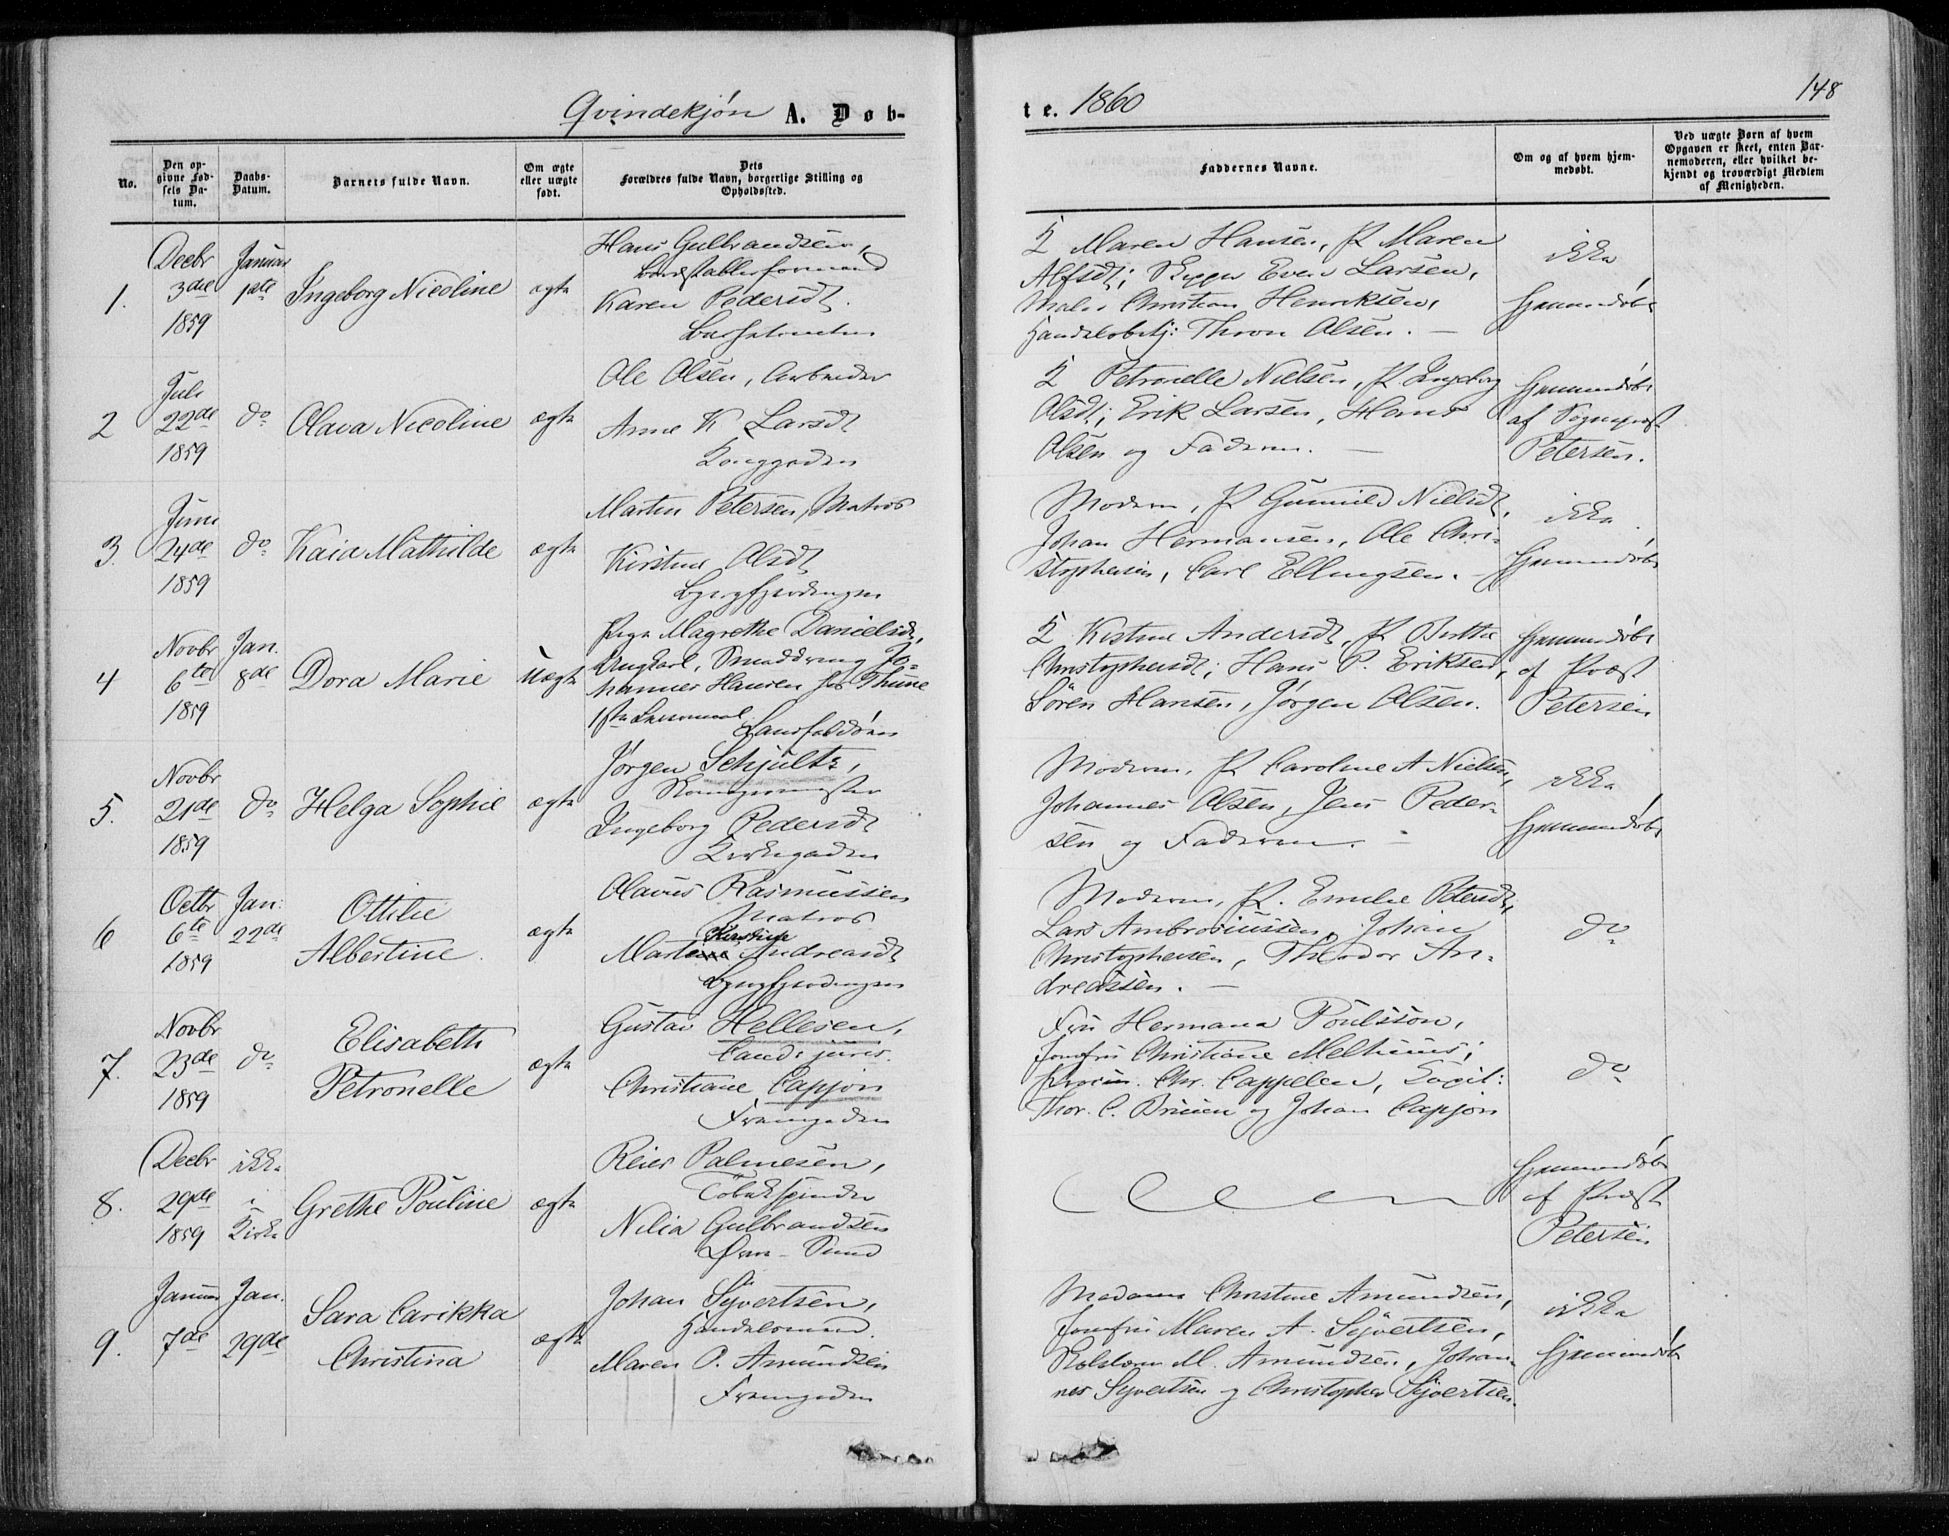 Qvindekjøn A. Døb-
te. 1860
148
No.
Den op-
givne Fød-
sels Da-
tum.
Daabs-
Datum.
Barnets fulde Navn.
Om ægte
eller uægte
født.
Dets
Forældres fulde Navn, borgerlige Stilling og
Opholdssted.
Faddernes Navne.
Om og af hvem hjem-
medøbt.
Ved uægte Børn af hvem
Opgaven er skeet, enten Bar-
nemoderen, eller hvilket be-
kjendt og troværdigt Medlem
af Menigheden.
1.
Decbr
3die
1859
Januar
1ste
Ingeborg Nicoline
ægte
Hans Gulbrandsen,
Karen Pedersdt.
K Maren Hansen, P Maren
Alfsdt; Even Larsen,
Maler Christian Henriksen,
Thron Olsen. —
ikke
hjemmedøbt
2
Juli
22de
1859
do
Olava Nicoline
ægte
Ole Olsen, Arbeider
Anne K Larsdt
Langgaden
K Petronelle Nielsen, P Ingeborg
Olsdt; Erik Larsen, Hans
Olsen og Faderen. —
hjemmedøbt
af Sognepræst
Petersen.
3.
Juni
24de
1859
do
Kaia Mathilde
ægte
Martin Petersen, Matros
Kirstine Olsdt
Bjergfjerdingen
Moderen, P Gunnild Nielsdt,
Johan Hermansen, Ole Chri-
stophersen, Carl Ellingsen.
ikke
hjemmedøbt
4
Novbr
6te
1859
Jan.
8de
Dora Marie
Uægte
Pige Magrethe Danielsdt,
Ungkarl, Smeddreng Jo-
hannes Hansen hos Thune
1ste Leiermaal
K Kirstine Andersdt, P Berthe
Christophersdt; Hans P. Eriksen,
Søren Hansen, Jørgen Olsen.
hjemmedøbt
af Præst
Petersen
5.
Novbr
21de
1859
do
Helga Sophie
ægte
Jørgen Schjultz,
Ingeborg Pedersdt
Kirkegaden
Moderen, P Caroline A Nielsen,
Johannes Olsen, Jens Peder-
sen og Faderen. —
ikke
hjemmedøbt
6
Octbr
6te
1859
Jan:
22de
Ottilie
Albertine.
ægte
Olavus Rasmussen
Matros
Kirstine
Martine Andreasdt
Bjergfjerdingen
Moderen, P. Emelie Petersdt,
Lars Ambrosiussen, Johan
Christophersen, Theodor An-
dreassen. —
do
7.
Novbr
23de
1859
do
Elisabeth
Petronelle
ægte
Gustav Hellesen,
Cand: juris.
Christiane Capjon
Frangaden
Fru Hermana Poulsson,
Jomfru Christiane Melhuus;
Chr. Cappelen,
Thor. C. Bruun og Johan Capjon
do
8.
Decbr
29de
1859
ikke
i
Kirke
Grethe Pouline
ægte
Reier Palmesen,
Tobakspinder
Nilia Gulbrandsen
Øvre-Sund
hjemmedøbt
af Præst
Petersen
9.
Januar
7de
Jan.
29de
Sara Carikka
Christina
ægte
Johan Syvertsen,
Handelsmand.
Maren P. Amundsen
Frangaden
Madame Christine Amundsen,
Jomfru Maren A. Syvertsen,
M. Amundsen, Johan-
nes Syvertsen og Christopher Syvertsen.
ikke
hjemmedøbt